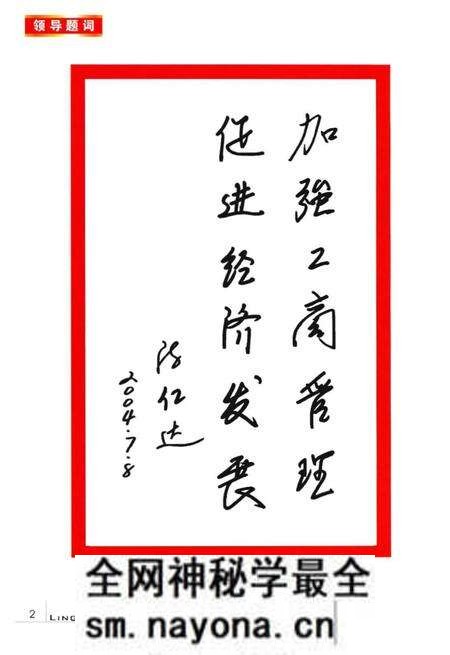 领导题词
加強工商管理
促进经济发展
陈仁达
2004.7.8
全网神秘学最全
2 LING
sm.nayona.cn